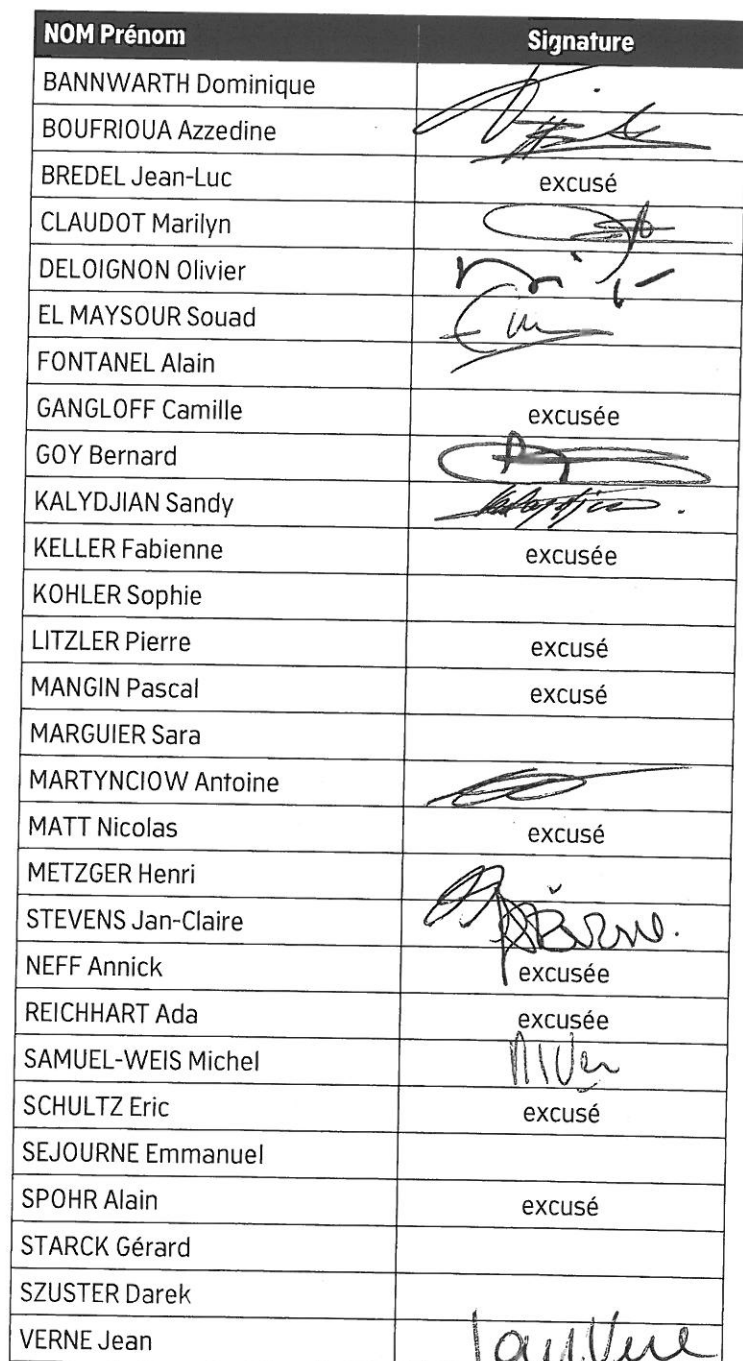 NOM Prénom Signature
BANNWARTH Dominique
BOUFRIOUA Azzedine
BREDEL Jean-Luc excusé
CLAUDOT Marilyn
DELOIGNON Olivier
EL MAYSOUR Souad
FONTANEL Alain
GANGLOFF Camille excusée
GOY Bernard
KALYDJIAN Sandy Kalydjian.
KELLER Fabienne excusée
KOHLER Sophie
LITZLER Pierre excusé
MANGIN Pascal excusé
MARGUIER Sara
MARTYNCIOW Antoine
MATT Nicolas excusé
METZGER Henri
STEVENS Jan-Claire
NEFF Annick excusée
REICHHART Ada excusée
SAMUEL-WEIS Michel
SCHULTZ Eric excusé
SEJOURNE Emmanuel
SPOHR Alain excusé
STARCK Gérard
SZUSTER Darek
VERNE Jean